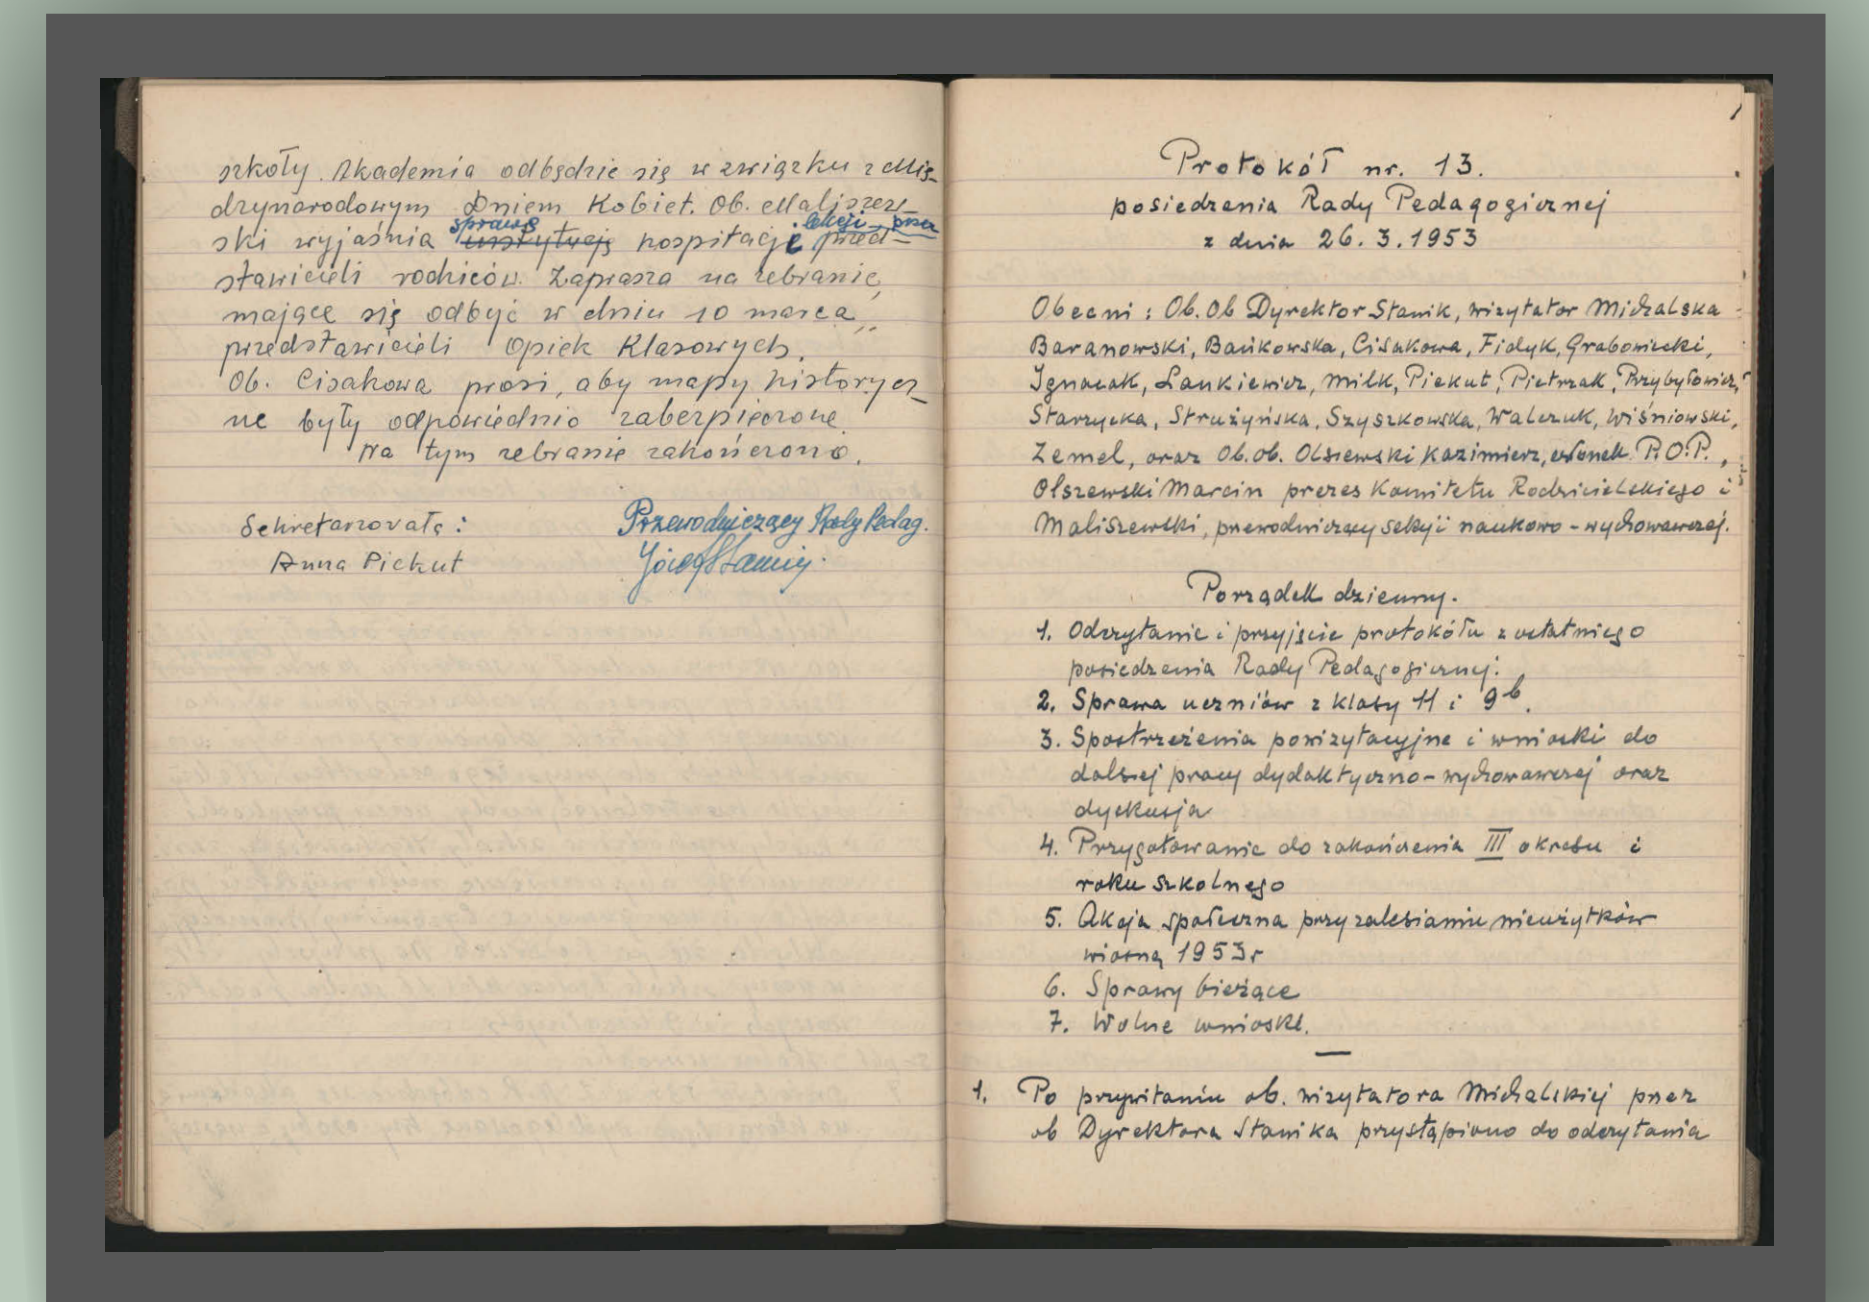 szkoły. Akademia odbędzie się w związku z Mię-
dzynarodowym Dniem Kobiet. Ob. Maliszew-
sprawę lekcji przez
ski wyjaśnia instytucję hospitacji przed-
stawicieli rodziców. Zaprasza na zebranie,
mające się odbyć w dniu 10 marca,
przedstawicieli Opiek Klasowych.
Ob. Cisakowa prosi, aby mapy historycz-
ne były odpowiednio zabezpieczone.
Na tym zebranie zakończono.
Sekretarzowała:
Anna Piekut
Przewodniczący Rady Pedag.
Józef Stanik
Protokół nr. 13.
posiedzenia Rady Pedagogicznej
z dnia 26.3.1953
Obecni: Ob. Ob Dyrektor Stanik, wizytator Michalska
Baranowski, Bańkowska, Cisakowa, Fidyk, Grabowiecki,
Ignaciak, Lankiewicz, Milk, Piekut, Pietrzak, Przybyłowicz,
Starzycka, Strużyńska, Szyszkowska, Walczuk, Wiśniowski,
Zemel, oraz Ob. ob. Olszewski Kazimierz, członek P.O.P.,
Olszewski Marcin prezes Komitetu Rodzicielskiego i
Maliszewski, przewodniczący sekcji naukowo-wychowawczej.
Porządek dzienny.
1. Odczytanie i przyjęcie protokółu z ostatniego
posiedzenia Rady Pedagogicznej.
2. Sprawa uczniów z klasy 11 i 9b.
3. Spostrzeżenia powizytacyjne i wnioski do
dalszej pracy dydaktyczno-wychowawczej oraz
dyskusja
4. Przygotowanie do zakończenia III okresu i
roku szkolnego
5. Akcja społeczna przy zalesianiu nieużytków
wiosną 1953r
6. Sprawy bieżące
7. Wolne wnioski.
1. Po przywitaniu ob. wizytatora Michalskiej przez
ob Dyrektora Stanika przystąpiono do odczytania